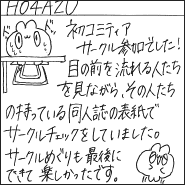 H04A20
初コミティア
サークル参加でした!
目の前を流れる人たち
を見ながら、その人たち
の持っている同人誌の表紙で
サークルチェックをしていました。
サークルめぐりも最後に
できて 楽しかったです。